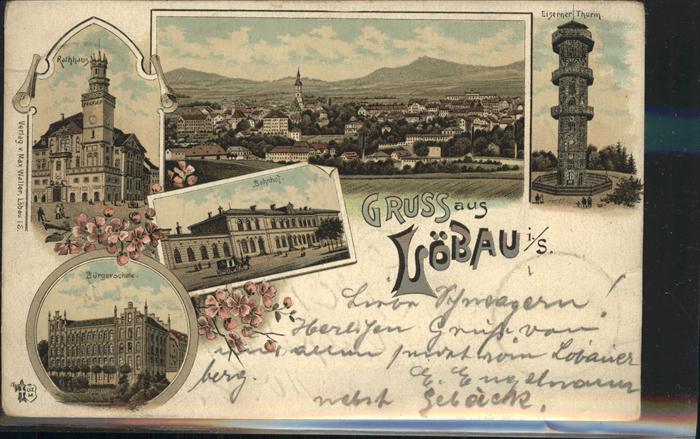 Rathhaus.
Eiserner Thurm.
Bahnhof.
Bürgerschule.
Verlag v. Max Walter, Löbau i/S.
GRUSS aus
LÖBAU i/S.
Liebe Schwägerin!
Herzlichen Gruß von
uns allen vom Löbauer
berg.
E. Engelmann
nebst Gebäck.